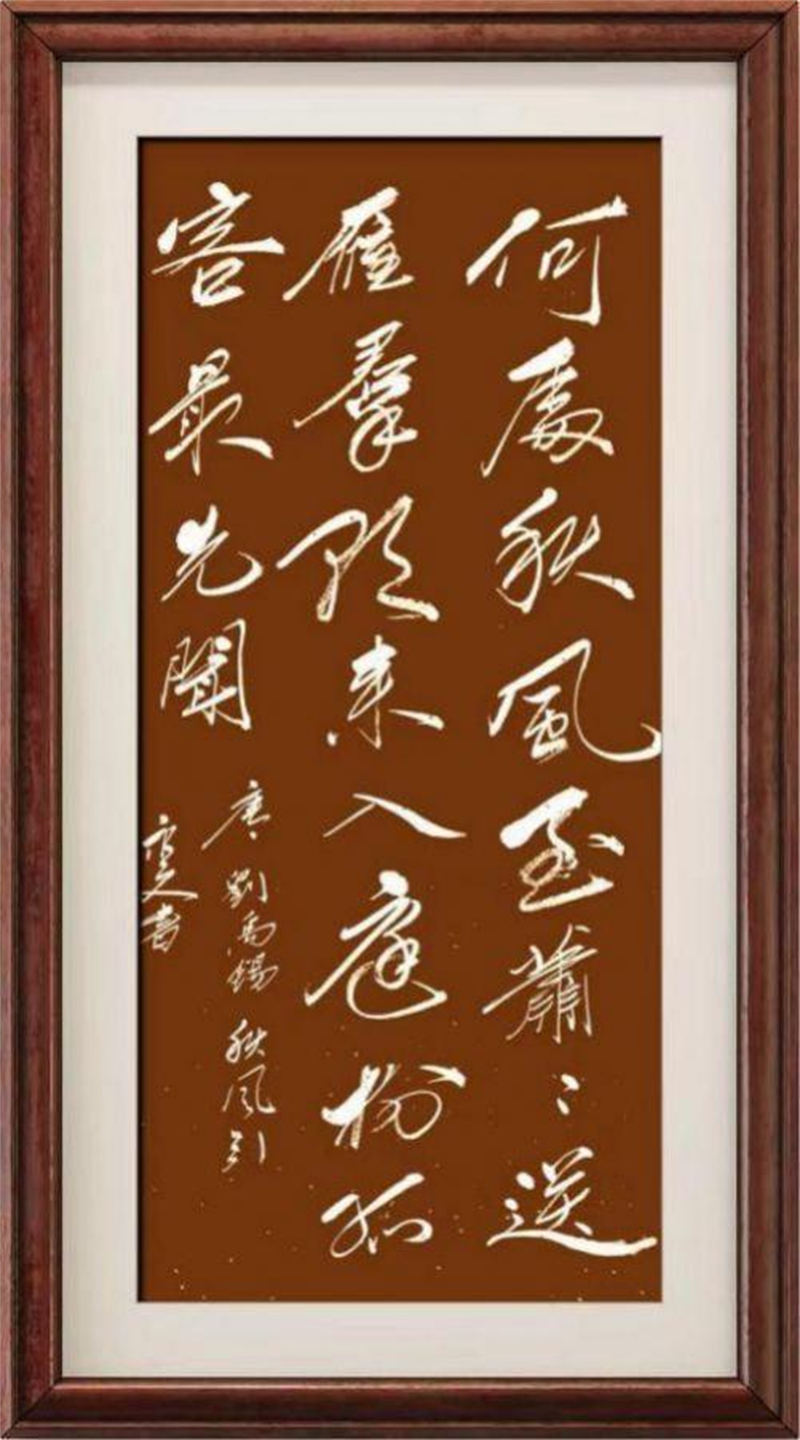 何處秋風至蕭〻送
雁羣朝来入庭孤
客最先聞
唐劉禹錫秋風引
書